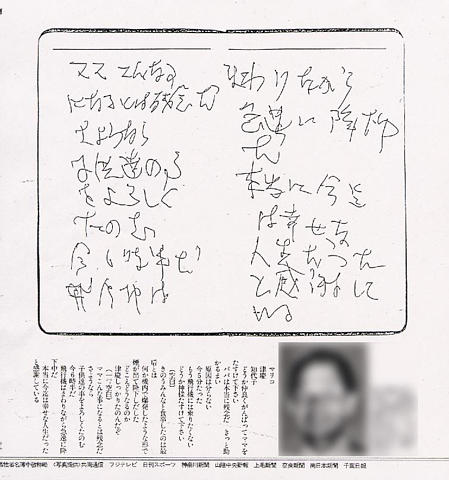 ママ こんな事
になるとは残念だ
さようなら
子供達の事
をよろしく
たのむ
今6時半だ
飛行機は
まわりながら
急速に降下中
だ
本当に今迄
は幸せな
人生だった
と感謝して
いる
マリコ
津慶
知代子
どうか仲良くがんばってママを
たすけて下さい
パパは本当に残念だ きっと助
かるまい
原因は分らない
今5分たった
もう飛行機には乗りたくない
どうか神様たすけて下さい
(空白)
きのうみんなと食事したのは最
后とは
何か機内で爆発したような形で
煙が出て降下しだした
どこえどうなるのか
津慶しっかりたのんだぞ
(一、二空白)
ママこんな事になるとは残念だ
さようなら
子供達の事をよろしくたのむ
今6時半だ
飛行機はまわりながら急速に降
下中だ
本当に今迄は幸せな人生だった
と感謝している
犠牲者名簿中敬称略 (写真提供)共同通信 フジテレビ 日刊スポーツ 神奈川新聞 山陰中央新報 上毛新聞 奈良新聞 南日本新聞 千葉日報